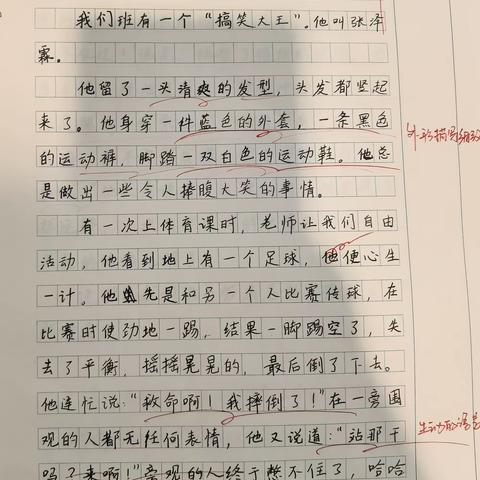 我们班有一个“搞笑大王”。他叫张泽
霖。
他留了一头清爽的发型,头发都竖起
来了。他身穿一件蓝色的外套,一条黑色
的运动裤,脚踏一双白色的运动鞋。他总
是做出一些令人捧腹大笑的事情。
有一次上体育课时,老师让我们自由
活动,他看到地上有一个足球,他便心生
一计。他先是和另一个人比赛传球,在
比赛时使劲地一踢,结果一脚踢空了,失
去了平衡,摇摇晃晃的,最后倒了下去。
他连忙说:“救命啊!我摔倒了!”在一旁围
观的人都无任何表情,他又说道:“站那干
吗?来啊!”旁观的人终于憋不住了,哈哈
外形描写
生动的语